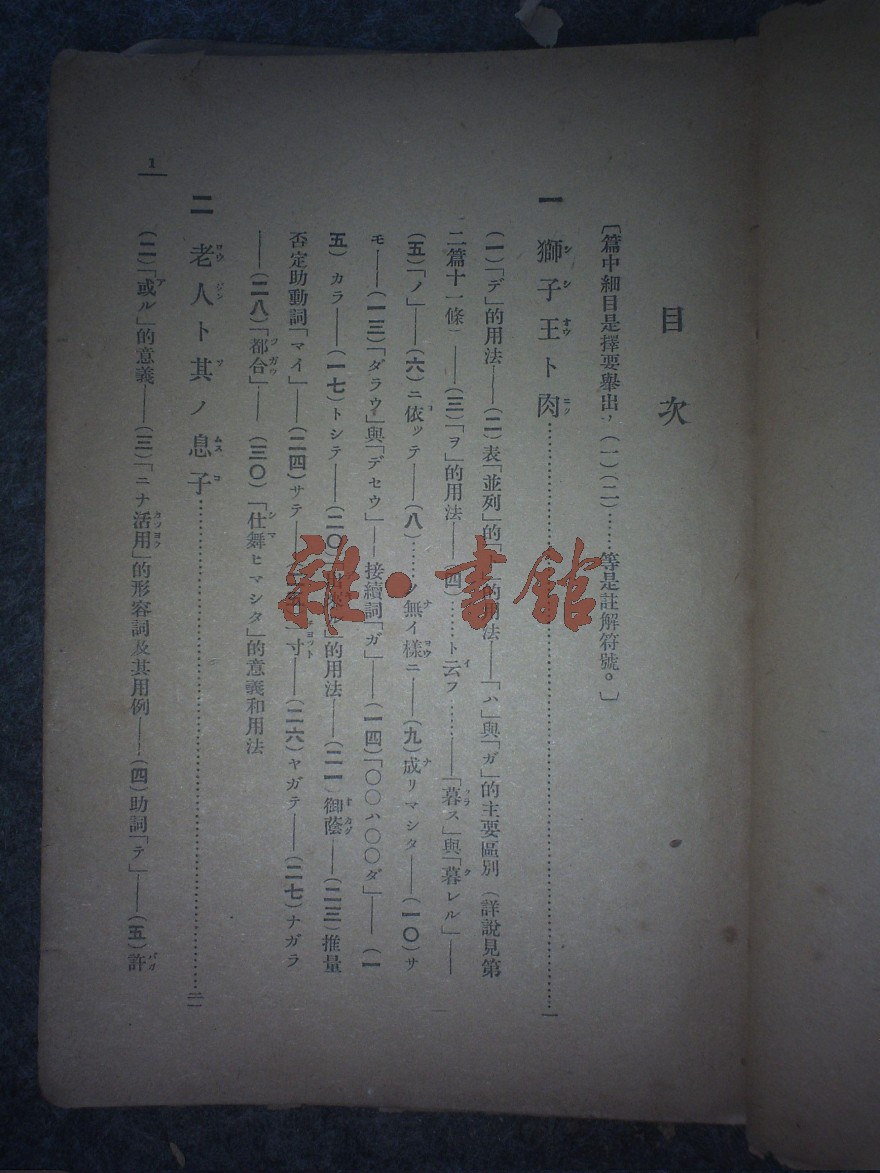 目次
〔篇中細目是擇要舉出，(一)(二)……等是註解符號。〕
一 獅子王ト肉……………一
(一)「デ」的用法——(二)表「並列」的「 」的用法——「ハ」與「ガ」的主要區別（詳說見第
二篇十一條）——(三)「ヲ」的用法——(四)……ト云フ……——「暮ス」與「暮レル」——
(五)「ノ」——(六)ニ依ッテ——(八)……ノ無イ様ニ——(九)成リマシタ——(一〇)サ
モ——(一三)「ダラウ」與「デセウ」——接續詞「ガ」——(一四)「〇〇ハ〇〇ダ」——(一
五)カラ——(一七)トシテ——(二〇) 的用法——(二一)御蔭——(二三)推量
否定助動詞「マイ」——(二四)サテ—— 一寸——(二六)ヤガテ——(二七)ナガラ
——(二八)「都合」——(三〇)「仕舞ヒマシタ」的意義和用法
二 老人ト其ノ息子……………二一
(二)「或ル」的意義——(三)「ニナ活用」的形容詞及其用例——(四)助詞「テ」——(五)許
1
雜·書館